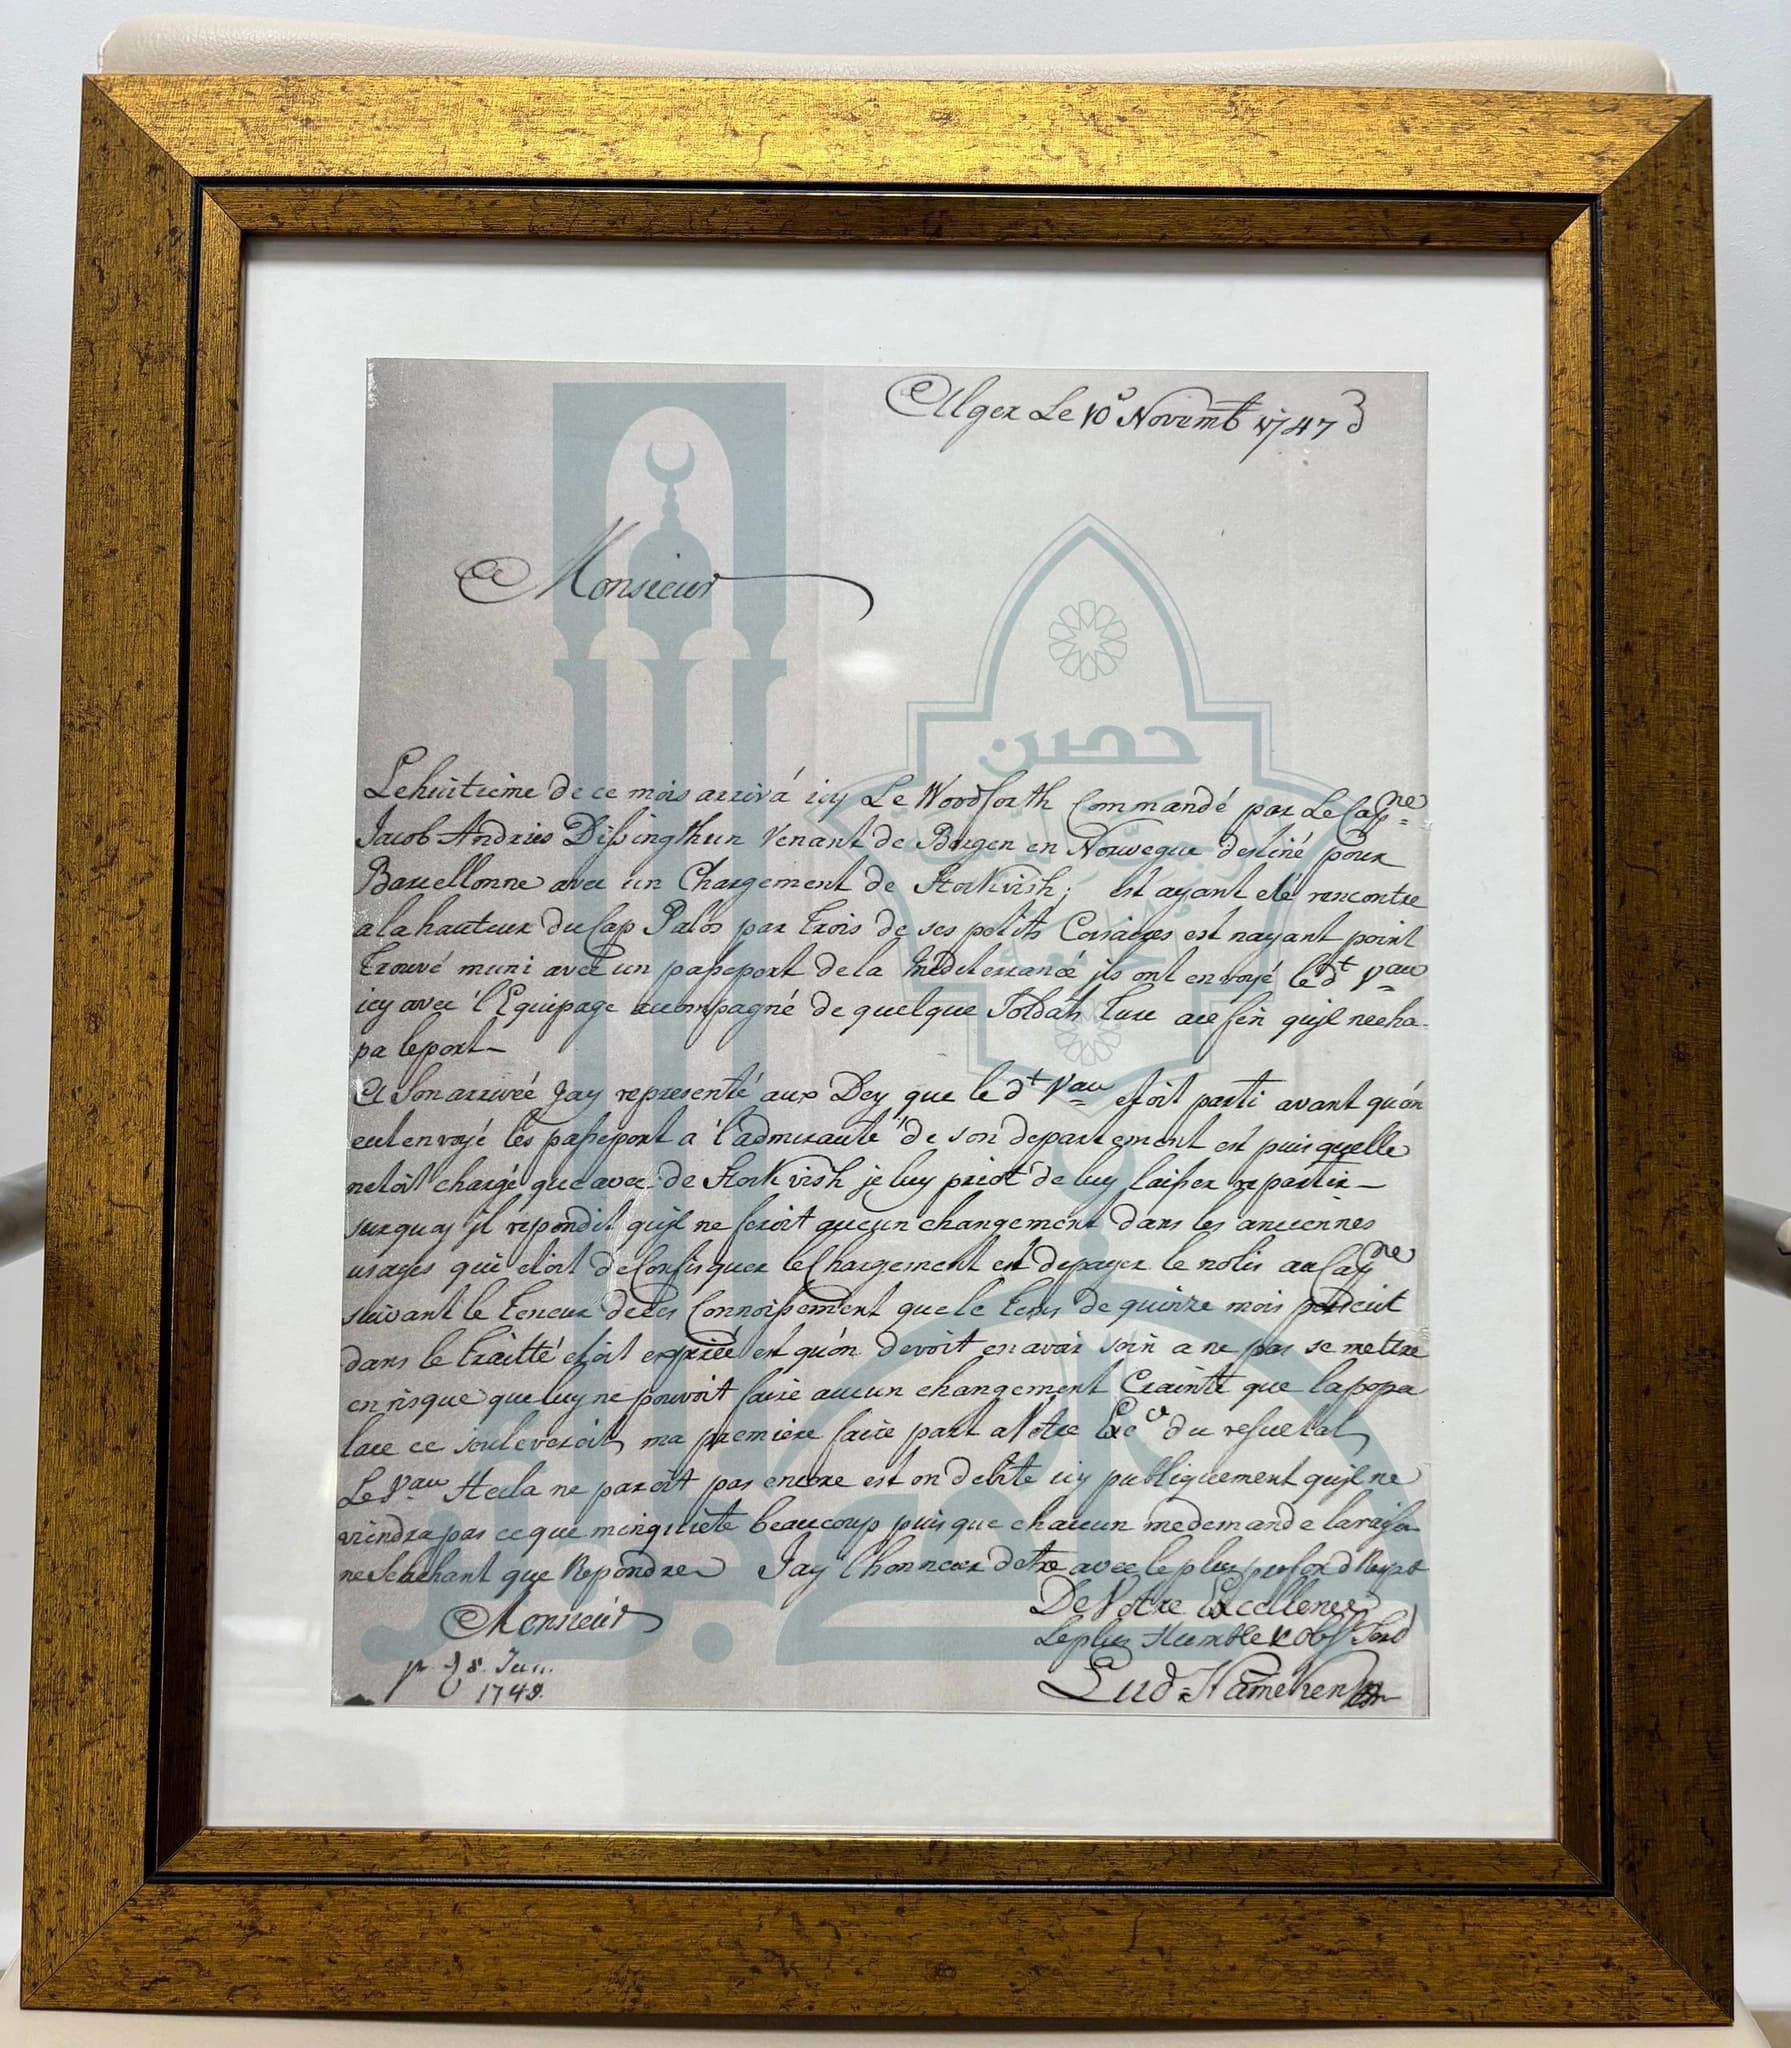 Alger Le 10e Novembr 1747
Monsieur
حصن
Le huitieme de ce mois arrivá icy Le Woodforth Commandé par Le Capne
Jacob Andries venant de Bergen en Norwegue destiné pour
Barcellonne avec un Chargement de Stockvish; est ayant eté rencontre
a la hauteur du Cap Palos par trois de ses petits Corsaires est nayant point
trouvé muni avec un passeport de la mediterranée jls ont envoyé le dt Vau
icy avec l'Equipage acompagné de quelque Soldats Turc ace fin qujl necha-
pa le port-
A son arrivée Jay representé aux Dey que le dt Vau etoit parti avant qu'on
eut envoyé les passeport a l'admirauté de son departement est puis quelle
netoit chargé que avec de Stockvish je luy priot de luy laisser repartir-
surquoy jl répondit qujl ne feroit aucun changement dans les anciennes
usages qui etoit de Confisquer le Chargement est depayer le nolis au Capne
suivant le teneur de ces Connoissement que le tems de quinze mois
dans le traitté etoit est qu'on devoit en avoir soin a ne pas se mettre
en risque que luy ne pouvoit faire aucun changement Crainte que la popu
lace ce souleveroit, ma premiere faire part a Votre Exce du resultat,
Le Vau Hecla ne paroit pas encore est on debite icy publiquement qujl ne
viendra pas ce que minquiete beaucoup puis que chacun me demande la raison
ne Scachant que Repondre Jay l'honneur detre avec le plus profond Respet
Monsieur
De Votre Excellence
Le plus Humble & obst Serv
p. d 8. Jan.
1748.
Lud: Hameken